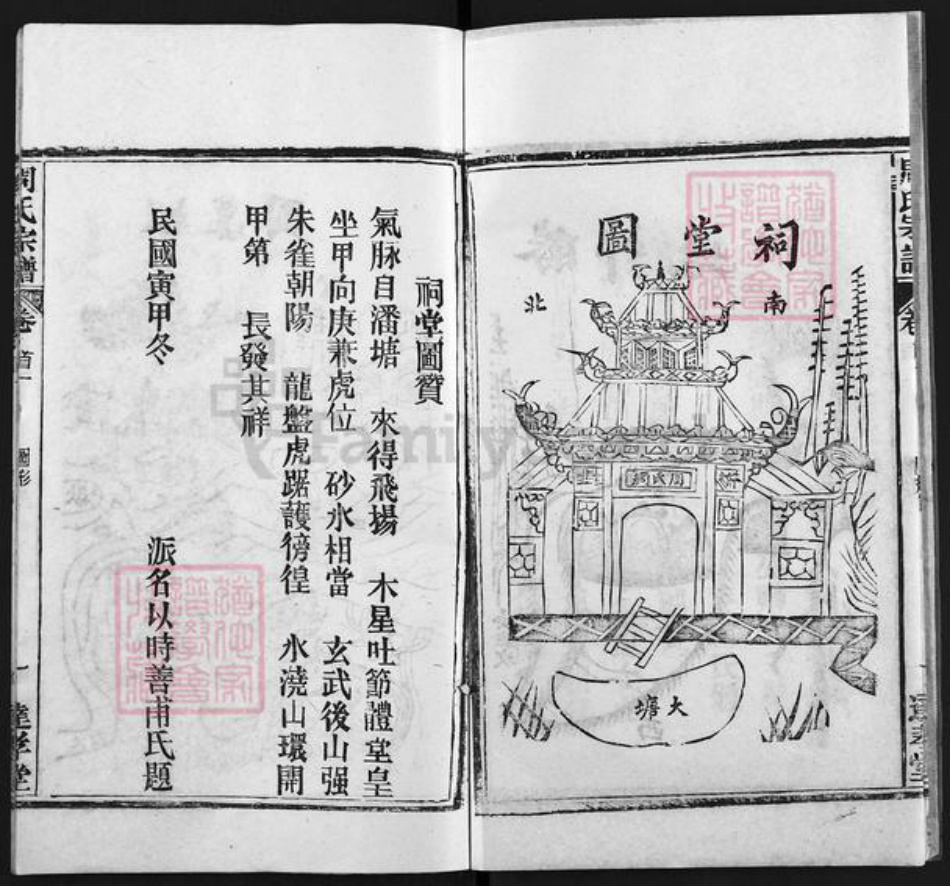 祠堂圖
南
北
周氏祠
大塘
祠堂圖贊
氣脉自潘塘 來得飛揚 木星吐節體堂皇
坐甲向庚兼虎位 砂水相當 玄武後山强
朱雀朝陽 龍盤虎踞護徬徨 水澆山環開
甲第 長發其祥
民國寅甲冬 派名以時善甫氏題
周氏宗譜
卷首一
圖形
一
達孝堂